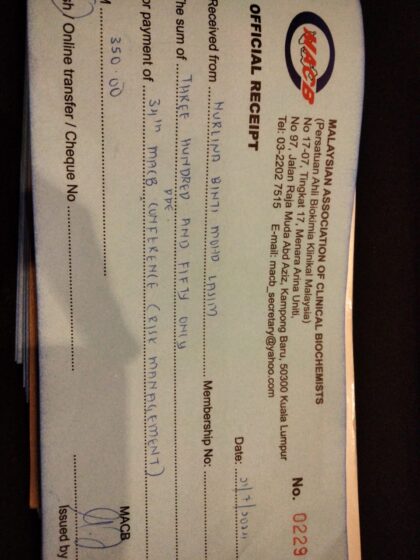 MACB
MALAYSIAN ASSOCIATION OF CLINICAL BIOCHEMISTS
(Persatuan Ahli Biokimia Klinikal Malaysia)
No 17-07, Tingkat 17, Menara Arina Uniti,
No 97, Jalan Raja Muda Abd Aziz, Kampong Baru, 50300 Kuala Lumpur
Tel: 03-2202 7515 E-mail: macb_secretary@yahoo.com
No. 0229
OFFICIAL RECEIPT
Date:
Received from NURLINA BINTI MOHD Membership No:
The sum of THREE HUNDRED AND FIFTY ONLY
PRE
or payment of 34th MACB CONFERENCE (RISK MANAGEMENT)
350.00
MACB
sh / Online transfer / Cheque No
Issued by